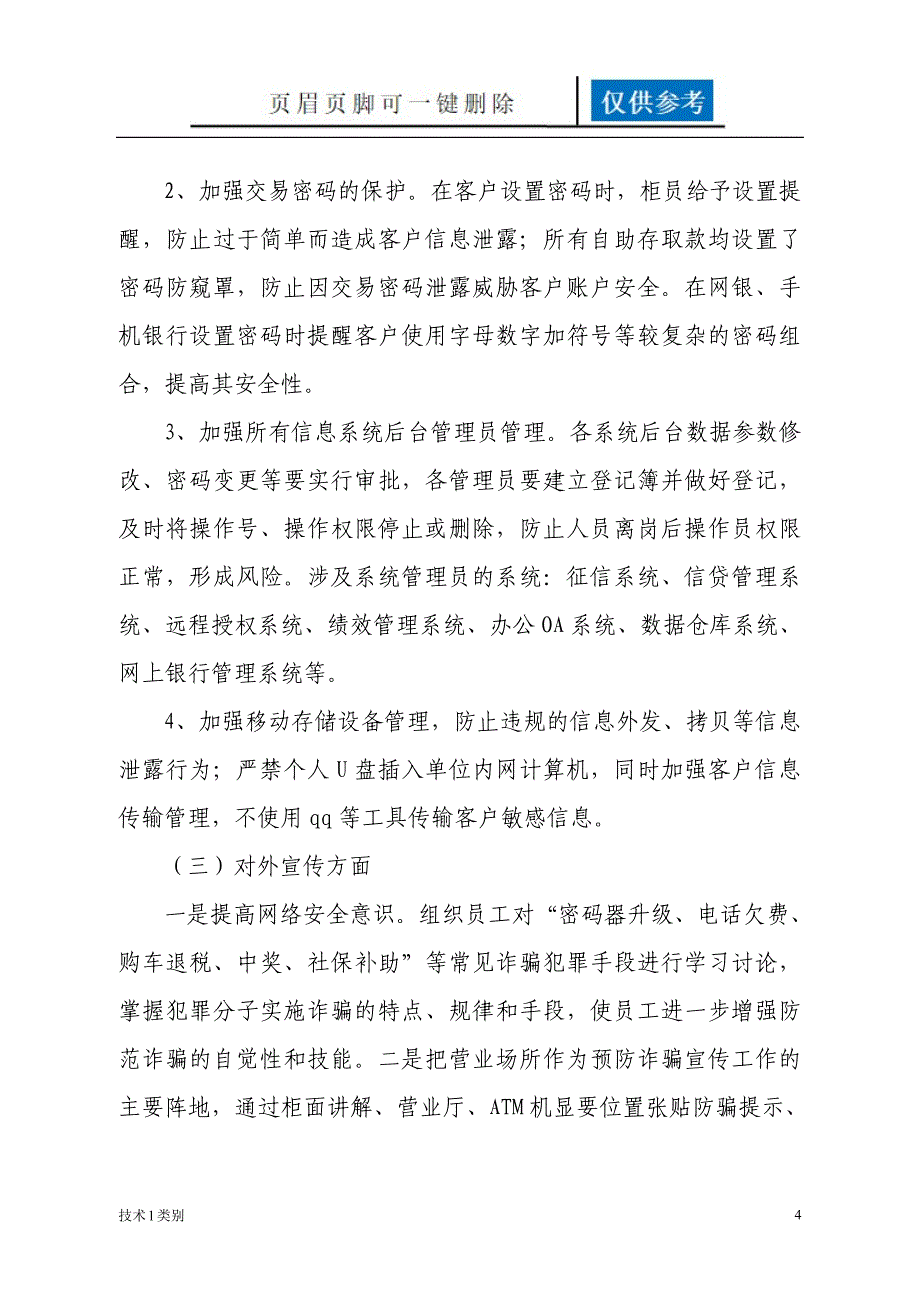 页眉页脚可一键删除 仅供参考
2、加强交易密码的保护。在客户设置密码时，柜员给予设置提
醒，防止过于简单而造成客户信息泄露；所有自助存取款均设置了
密码防窥罩，防止因交易密码泄露威胁客户账户安全。在网银、手
机银行设置密码时提醒客户使用字母数字加符号等较复杂的密码组
合，提高其安全性。
3、加强所有信息系统后台管理员管理。各系统后台数据参数修
改、密码变更等要实行审批，各管理员要建立登记簿并做好登记，
及时将操作号、操作权限停止或删除，防止人员离岗后操作员权限
正常，形成风险。涉及系统管理员的系统：征信系统、信贷管理系
统、远程授权系统、绩效管理系统、办公 OA 系统、数据仓库系统、
网上银行管理系统等。
4、加强移动存储设备管理，防止违规的信息外发、拷贝等信息
泄露行为；严禁个人 U 盘插入单位内网计算机，同时加强客户信息
传输管理，不使用 qq 等工具传输客户敏感信息。
（三）对外宣传方面
一是提高网络安全意识。组织员工对“密码器升级、电话欠费、
购车退税、中奖、社保补助”等常见诈骗犯罪手段进行学习讨论，
掌握犯罪分子实施诈骗的特点、规律和手段，使员工进一步增强防
范诈骗的自觉性和技能。二是把营业场所作为预防诈骗宣传工作的
主要阵地，通过柜面讲解、营业厅、ATM 机显要位置张贴防骗提示、
技术 1 类别 4